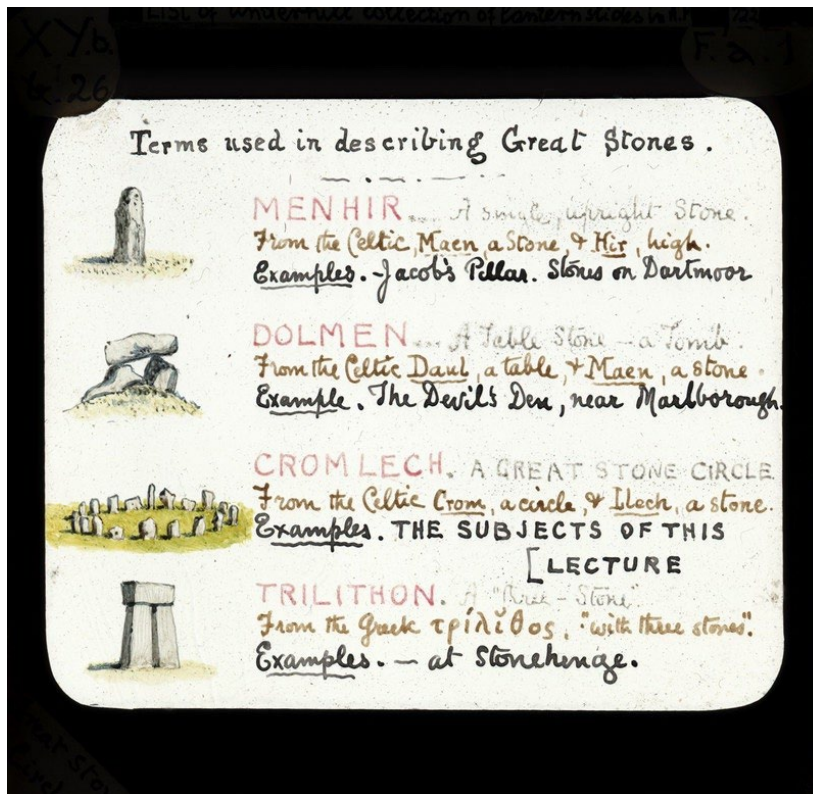 LIST of Underhill collection of lantern slides in
XYb.
26
F.a.1
Terms used in describing Great Stones.
MENHIR.... A single, upright Stone.
From the Celtic, Maen, a Stone, & Hir, high.
Examples. - Jacob's Pillar. Stones on Dartmoor
DOLMEN... A Table Stone - a Tomb.
From the Celtic Daul, a table, & Maen, a stone.
Example. The Devil's Den, near Marlborough.
CROMLECH. A GREAT STONE CIRCLE
From the Celtic Crom, a circle, & Llech, a stone.
Examples. THE SUBJECTS OF THIS
[LECTURE
TRILITHON. A "three-Stone"
From the Greek τρίλῐθος, "with three stones".
Examples. — at Stonehenge.